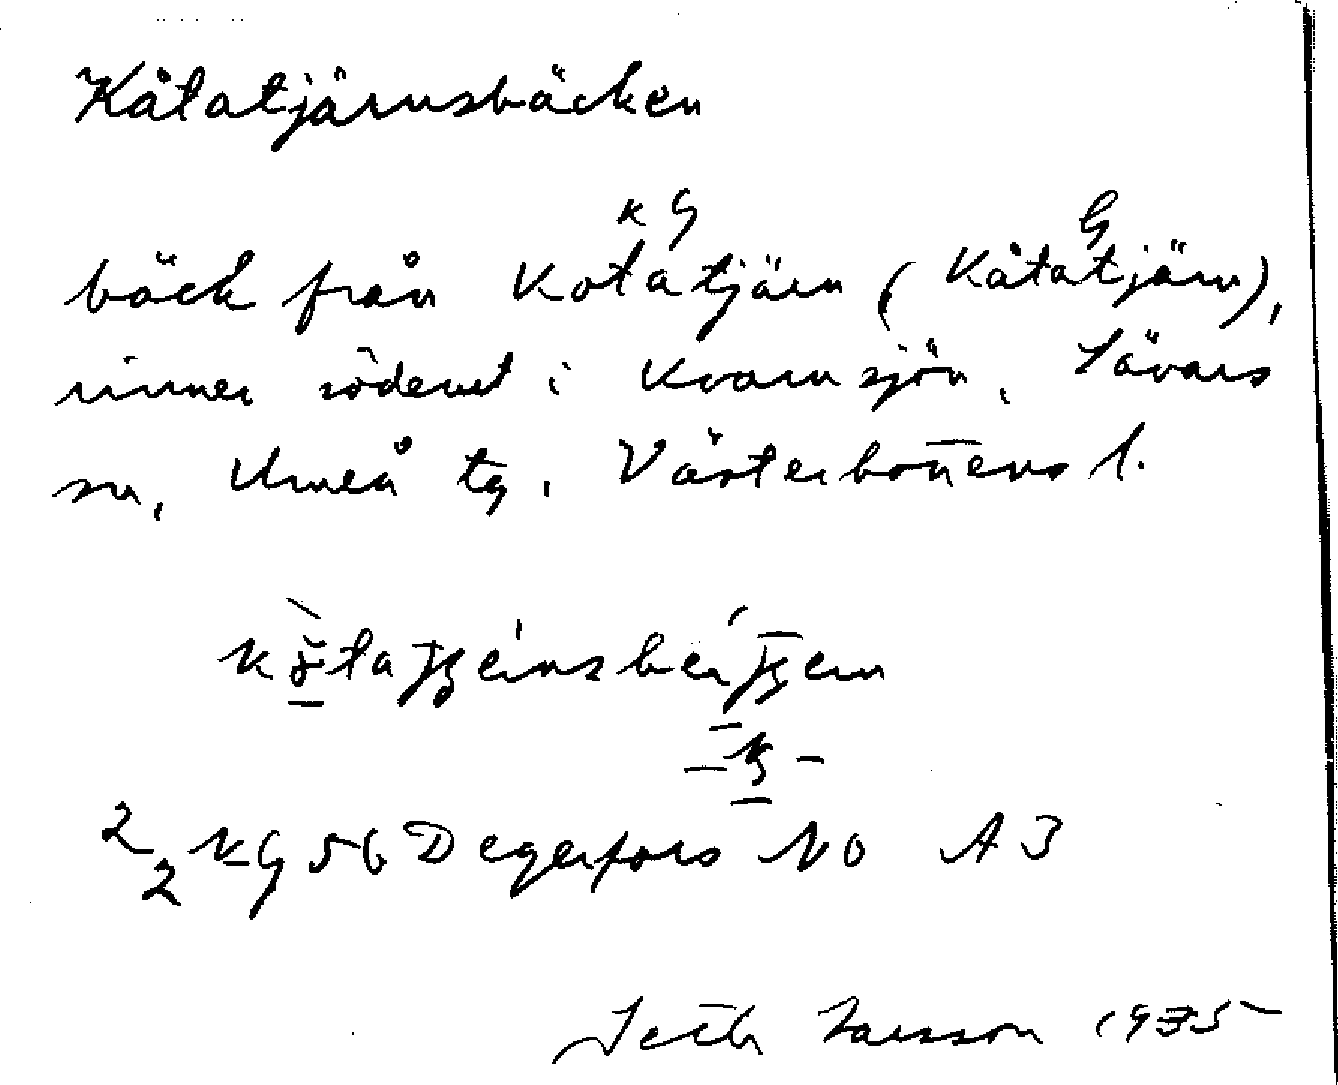 Kåtatjärnsbäcken
K G G
bäck från Kotatjärn (Kåtatjärn),
rinner söderut i Kvarnsjön, Sävars
sn, Umeå tg, Västerbottens l.
K
2 2 KG 56 Degerfors NO A3
Seth Larsson 1935